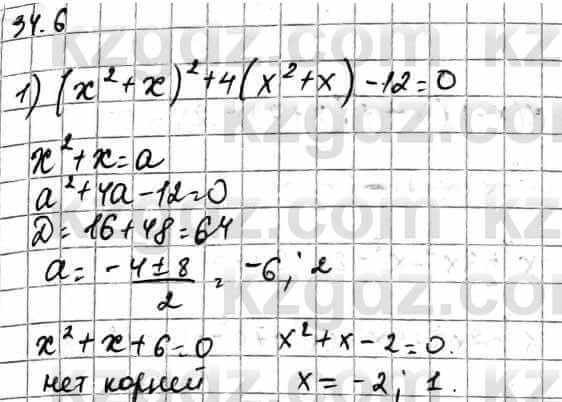 34.6
1) (x²+x)²+4(x²+x)-12=0
x²+x=a
a²+4a-12=0
D=16+48=64
a= (-4±8)/2 = -6; 2
x²+x+6=0 x²+x-2=0.
нет корней x=-2; 1.
kzgdz.com